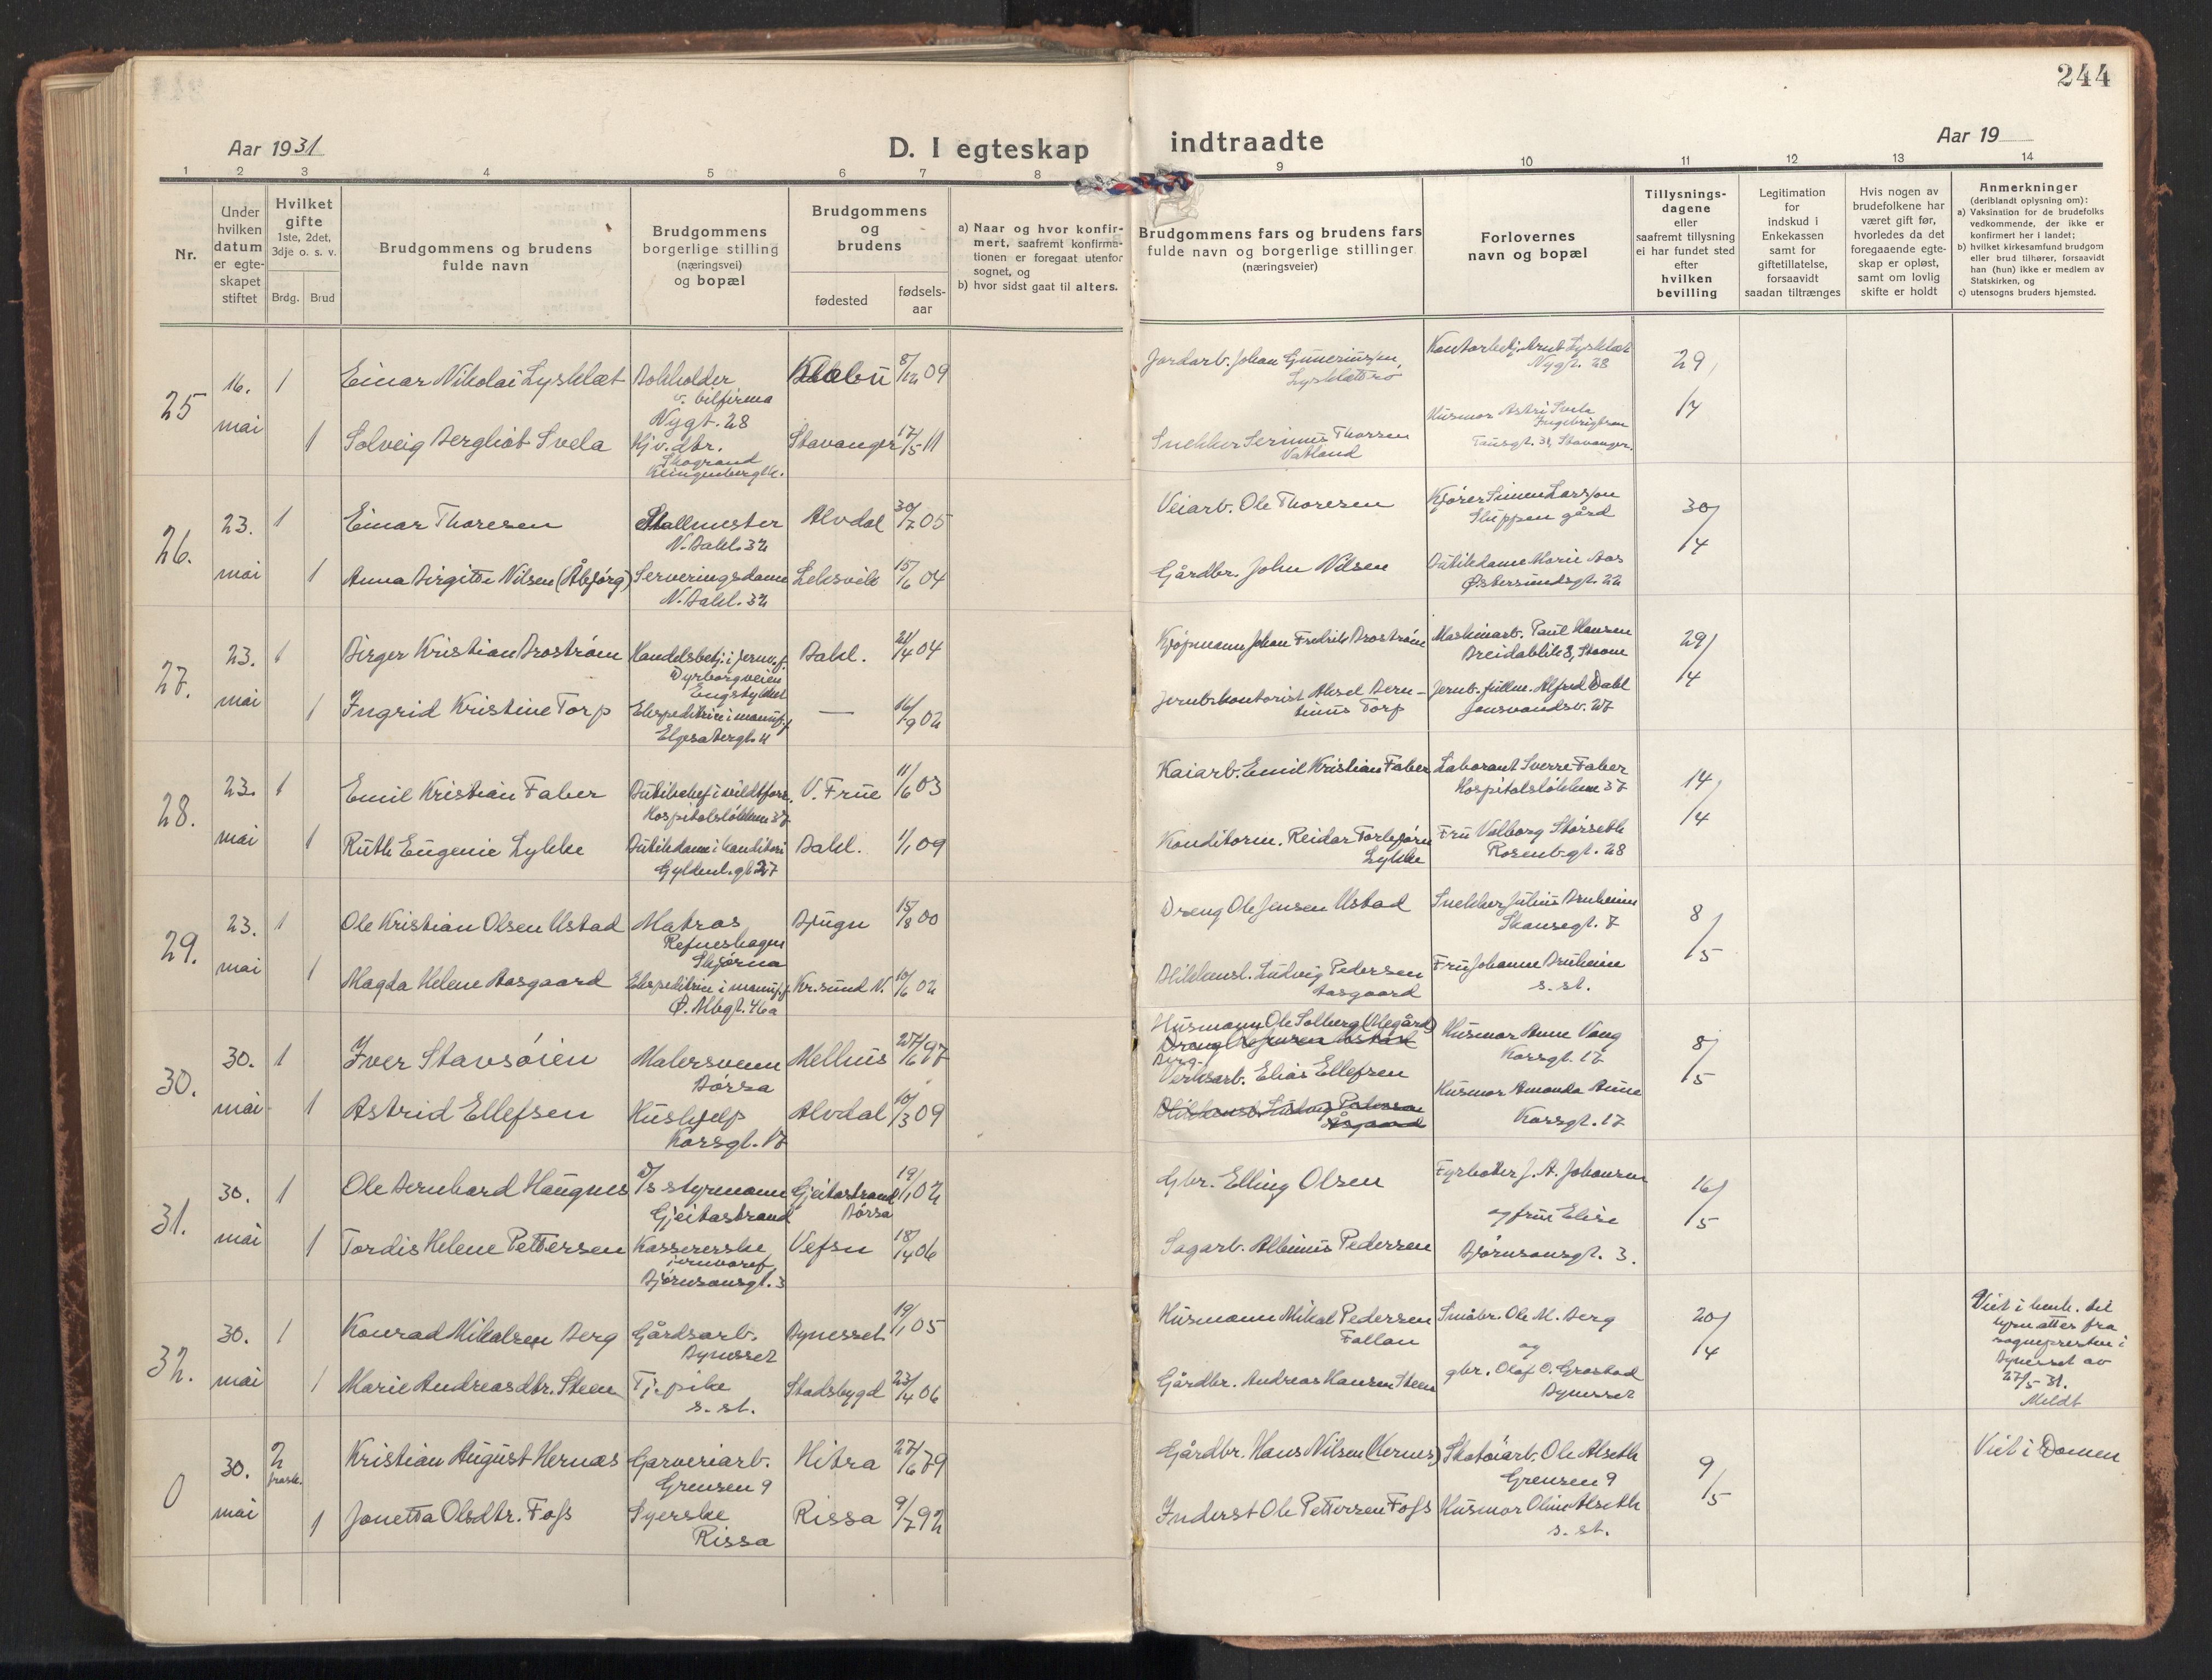 244
Aar 1931
D. I egteskap
indtraadte
Aar 19
1 2 3 4 5 6 7 8 9 10 11 12 13 14
Nr.
Under
hvilken
datum
er egte-
skapet
stiftet
Hvilket
gifte
1ste, 2det,
3dje o. s. v.
Brdg. Brud
Brudgommens og brudens
fulde navn
Brudgommens
borgerlige stilling
(næringsvei)
og bopæl
Brudgommens
og
brudens
fødested
fødsels-
aar
a) Naar og hvor konfir-
mert, saafremt konfirma-
tionen er foregaat utenfor
sognet, og
b) hvor sidst gaat til alters.
Brudgommens fars og brudens fars
fulde navn og borgerlige stillinger
(næringsveier)
Forlovernes
navn og bopæl
Tillysnings-
dagene
eller
saafremt tillysning
ei har fundet sted
efter
hvilken
bevilling
Legitimation
for
indskud i
Enkekassen
samt for
giftetillatelse,
forsaavidt
saadan tiltrænges
Hvis nogen av
brudefolkene har
været gift før,
hvorledes da det
foregaaende egte-
skap er opløst,
samt om lovlig
skifte er holdt
Anmerkninger
(deriblandt oplysning om):
a) Vaksination for de brudefolks
vedkommende, der ikke er
konfirmert her i landet;
b) hvilket kirkesamfund brudgom
eller brud tilhører, forsaavidt
han (hun) ikke er medlem av
Statskirken, og
c) utensogns bruders hjemsted.
25
16.
mai
1
Einar Nikolai Lysklæt
Bokholder
v. bilfirma
Nygt. 28
Klæbu
8/12 09
Jordarb. Johan Gunerius sen,
Lysklættrø
Kontorbetj. Arnt Lysklæt
Nygt. 28
29/4
1
Solveig Bergliot Svela
Hj.v. dtr.
Skogrand
Klingenbergkl.
Stavanger
17/5 11
Snekker Serinus Thorsen
Vatland
Husmor Astri Svela
Ingebrigtsen
Tausgt. 31, Stavanger.
26.
23.
mai
1
Einar Thoresen
Stallmester
N. Bakl. 32
Alvdal
30/7 05
Veiarb. Ole Thoresen
Kjører Simen Larsen
Sluppen gård
30/4
1
Anna Birgitte Nilsen (Åbjörg)
Serveringsdame
N. Bakl. 32
Leksvik
15/6 04
Gårdbr. John Nilsen
Butikdame Marie Aas
Østersundsgt. 22
27.
23.
mai
1
Birger Kristian Broström
Handelsbetj. i jernv.f.
Dyrborgveien
Engstykket
Bakl.
21/4 04
Kjøpmann Johan Fredrik Broström
Maskinarb. Paul Hansen
Breidablik 8, Stavne
29/4
1
Ingrid Kristine Torp
Ekspeditrice i manuf.f.
Elgesetergt. 11
—
16/9 02
Jernb.kontorist Aksel Bern-
tinus Torp
Jernb. fullm. Alfred Dahl
Jonsvandsv. 27
28.
23.
mai
1
Emil Kristian Faber
Butikchef i vildtforr.
Hospitalsløkken 37
V. Frue
11/6 03
Kaiarb. Emil Kristian Faber
Laborant Sverre Faber
Hospitalsløkken 37
14/4
1
Ruth Eugenie Lykke
Butikdame i konditori
Gyldenl. gt 27
Bakl.
1/1 09
Konditorm. Reidar Torbjørn
Lykke
Fru Valborg Størseth
Rosenb.gt. 28
29.
23.
mai
1
Ole Kristian Olsen Ustad
Matros
Refneshagen
Skjørna
Bjugn
15/8 00
Dreng Ole Jensen Ustad
Snekker Julius Bruheim
Skansegt. 7
8/5
1
Magda Helene Aasgaard
Ekspeditrice i manuf.f.
Ø. Møbgt. 46a
Kr.sund N.
10/6 02
Blikkensl. Ludvig Pedersen
Aasgaard
Fru Johanne Bruheim
s. st.
30.
30.
mai
1
Iver Stavsøien
Malersvenn
Børsa
Melhus
27/6 97
Husmann Ole Solberg (Olegård)
Dreng Ole Jensen Ustad
Berg-
Husmor Anne Vang
Korsgt. 17
8/5
1
Astrid Ellefsen
Hushjelp
Korsgt. 17
Alvdal
10/3 09
Verksarb. Elias Ellefsen
Blikkensl. Ludvig Pedersen
Åsgaard
Husmor Amanda Aune
Korsgt. 17
31.
30.
mai
1
Ole Bernhard Haugnes
d/s styrmann
Gjeitastrand
Gjeitastrand
Børsa
19/1 02
Gbr. Elling Olsen
Fyrbøter J. A. Johansen
og frue Elise
16/5
1
Tordis Helene Pettersen
Kassererske
jernvaref.
Bjørnsonsgt. 3
Vefsn
18/4 06
Sagarb. Albinus Pedersen
Bjørnsonsgt. 3.
32.
30.
mai
1
Konrad Mikalsen Berg
Gårdsarb.
Bynesset
Bynesset
19/1 05
Husmann Mikal Pedersen
Fallan
Småbr. Ole M. Berg
og
20/4
Viet i henh. til
lysn.attes fra
sogneprosten i
Bynesset av
27/5 31.
Meldt
1
Marie Andreasdtr. Steen
Tj. pike
s. st.
Stadsbygd
23/4 06
Gårdbr. Andreas Hansen Steen
gbr. Olaf O. Grostad
Bynesset
0
30.
mai
2
frask.
Kristian August Hernæs
Garveriarb.
Grensen 9
Hitra
27/6 79
Gårdbr. Hans Nilsen (Hernes)
Skotøiarb. Ole Alseth
Grensen 9
9/5
Viet i Domen
1
Jonetta Olsdtr. Foss
Syerske
Rissa
Rissa
9/7 92
Inderst Ole Pettersen Foss
Husmor Oline Alseth
s. st.